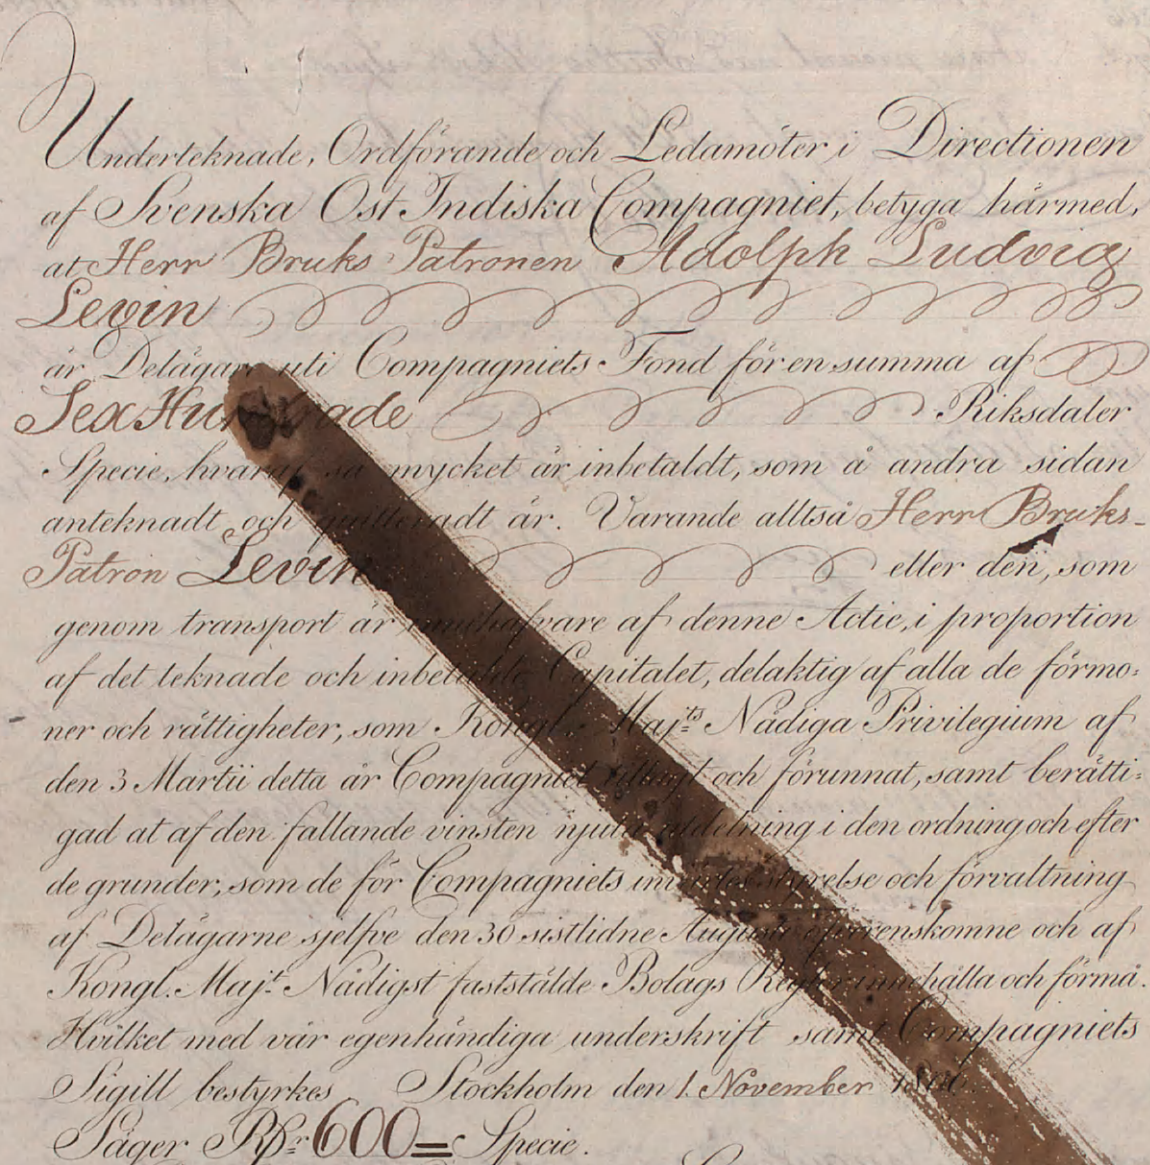 Underteknade, Ordförande och Ledamöter i Directionen
af Svenska Ost Indiska Compagniet, betyga härmed,
at Herr Bruks Patronen Adolph Ludvig
Levin
är Delägare uti Compagniets Fond för en summa af
Sex Hundrade Riksdaler
Specie, hvaraf så mycket är inbetaldt, som å andra sidan
anteknadt och quitteradt är. Varande alltså Herr Bruks-
Patron Levin eller den, som
genom transport är innehafvare af denne Actie, i proportion
af det teknade och inbetalde Capitalet, delaktig af alla de förmo:
ner och rättigheter, som Kongl. Maj:ts Nådiga Privilegium af
den 3 Martii detta år Compagniet tillagt och förunnat, samt berätti:
gad at af den fallande vinsten njuta utdelning i den ordning och efter
de grunder, som de för Compagniets inrättes styrelse och förvaltning
af Delägarne sjelfve den 30 sistlidne Augusti öfverenskomne och af
Kongl. Maj:t Nådigst faststälde Bolags Regler innehålla och förmå.
Hvilket med vår egenhändiga underskrift samt Compagniets
Sigill bestyrkes Stockholm den 1 November
Säger RDr: 600= Specie.